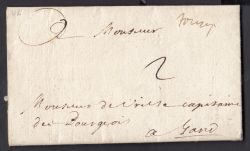 A Monsieur
2
Monsieur de
capitaine
des Bourgeois
a Gand